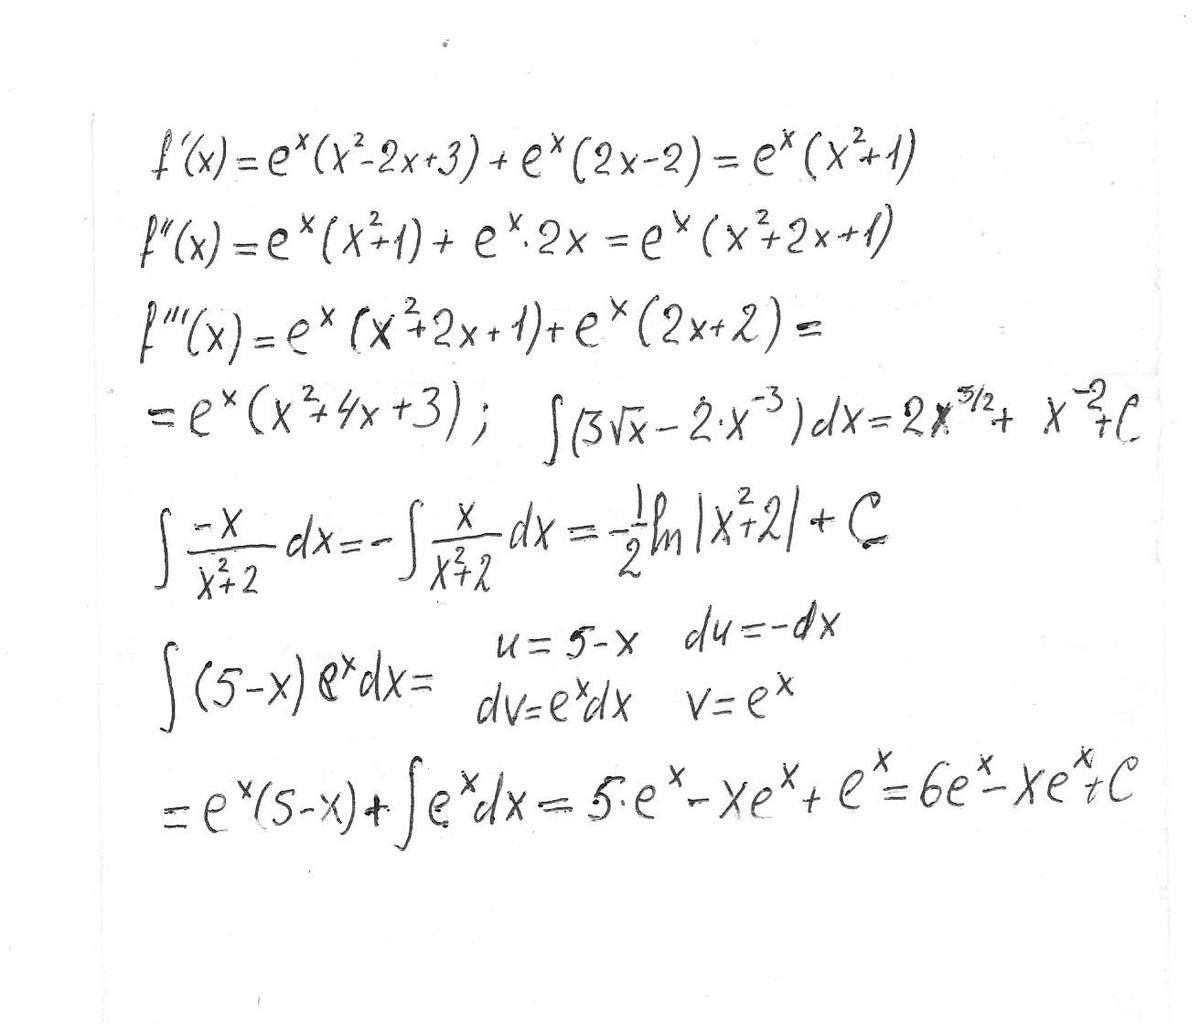 f'(x) = eˣ(x²-2x+3) + eˣ(2x-2) = eˣ(x²+1)
f''(x) = eˣ(x²+1) + eˣ·2x = eˣ(x²+2x+1)
f'''(x) = eˣ(x²+2x+1) + eˣ(2x+2) =
= eˣ(x²+4x+3); ∫(3√x - 2·x⁻³)dx = 2x^(3/2) + x⁻² + C
∫ -x/(x²+2) dx = -∫ x/(x²+2) dx = -1/2 ln|x²+2| + C
∫(5-x)eˣdx = u = 5-x du = -dx
dv = eˣdx v = eˣ
= eˣ(5-x) + ∫eˣdx = 5·eˣ - xeˣ + eˣ = 6eˣ - xeˣ + C